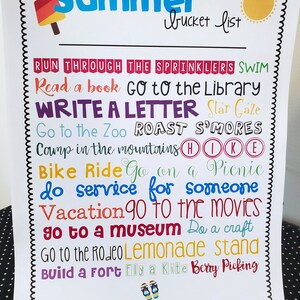 Summer
bucket list
RUN THROUGH THE SPRINKLERS SWIM
Read a book GO to the Library
WRITE A LETTER Star Gaze
Go to the Zoo ROAST S'MORES
Camp in the mountains HIKE
Bike Ride Go on a Picnic
do service for someone
Vacation go to the movies
go to a museum Do a craft
GO to the Rodeo Lemonade stand
Build a fort Fly a Kite Berry Picking